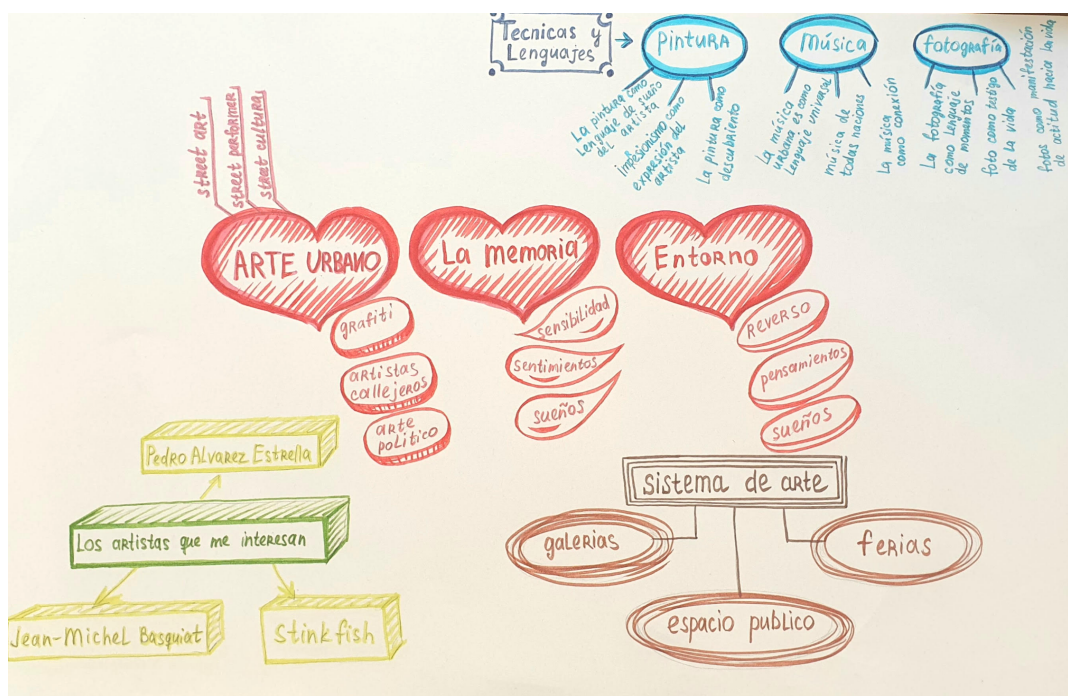 Tecnicas y
Lenguajes
pintura
Música
fotografía
La pintura como
Lenguaje de sueño
del artista
impesionismo como
expresión del
artista
La pintura como
descubriento
La música
urbana es como
Lenguaje universal
música de
todas naciones
La música
como conexión
La fotografía
como Lenguaje
de momentos
foto como testigo
de la vida
fotos como manifestación
de actitud hacia la vida
street art
street performer
street cultura
ARTE URBANO
grafiti
artistas
callejeros
arte
politico
La memoria
sensibilidad
sentimientos
sueños
Entorno
REVERSO
pensamientos
sueños
Pedro Alvarez Estrella
Los artistas que me interesan
Jean-Michel Basquiat
Stink fish
sistema de arte
galerias
ferias
espacio publico